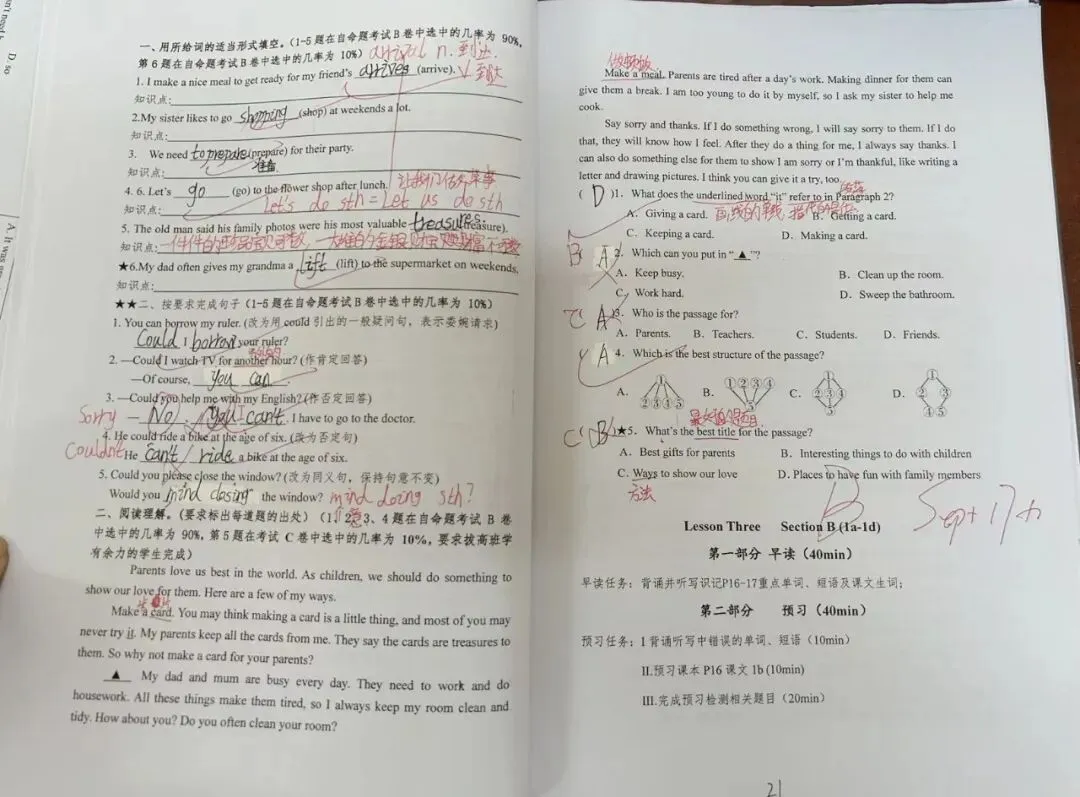 一、用所给词的适当形式填空。(1-5题在自命题考试B卷中选中的几率为 90%,
第6题在自命题考试B卷中选中的几率为 10%) arrival n. 到达.
1. I make a nice meal to get ready for my friend's arrives (arrive). v 到达
知识点:
2.My sister likes to go shopping (shop) at weekends a lot.
知识点:
3. We need to prepare (prepare) for their party.
准备
知识点:
4. 6. Let's go (go) to the flower shop after lunch.
Let's do sth = Let us do sth
5. The old man said his family photos were his most valuable treasures (treasure).
知识点:
★6.My dad often gives my grandma a lift (lift) to the supermarket on weekends.
知识点:
★★二、按要求完成句子(1-5题在自命题考试B卷中选中的几率为 10%)
1. You can borrow my ruler. (改为用 could 引出的一般疑问句，表示委婉请求)
Could I borrow your ruler?
2. —Could I watch TV for another hour? (作肯定回答)
—Of course, you can.
3. —Could you help me with my English? (作否定回答)
Sorry — No, you I can't. I have to go to the doctor.
4. He could ride a bike at the age of six. (改为否定句)
Couldn't He can't ride a bike at the age of six.
5. Could you please close the window? (改为同义句，保持句意不变)
Would you mind closing the window? mind doing sth?
二、阅读理解。(要求标出每道题的出处) (1、2、3、4题在自命题考试 B 卷
中选中的几率为 90%, 第5题在考试 C 卷中选中的几率为 10%, 要求拔高班学
有余力的学生完成)
Parents love us best in the world. As children, we should do something to
show our love for them. Here are a few of my ways.
Make a card. You may think making a card is a little thing, and most of you may
never try it. My parents keep all the cards from me. They say the cards are treasures to
them. So why not make a card for your parents?
▲ My dad and mum are busy every day. They need to work and do
housework. All these things make them tired, so I always keep my room clean and
tidy. How about you? Do you often clean your room?
做顿饭
Make a meal. Parents are tired after a day's work. Making dinner for them can
give them a break. I am too young to do it by myself, so I ask my sister to help me
cook.
Say sorry and thanks. If I do something wrong, I will say sorry to them. If I do
that, they will know how I feel. After they do a thing for me, I always say thanks. I
can also do something else for them to show I am sorry or I'm thankful, like writing a
letter and drawing pictures. I think you can give it a try, too.
( D )1. What does the underlined word "it" refer to in Paragraph 2?
A. Giving a card. B. Getting a card.
C. Keeping a card. D. Making a card.
B A 2. Which can you put in "▲"?
A. Keep busy. B. Clean up the room.
C. Work hard. D. Sweep the bathroom.
C A 3. Who is the passage for?
A. Parents. B. Teachers. C. Students. D. Friends.
A 4. Which is the best structure of the passage?
A. ① ② ③ ④ ⑤ B. ① ② ③ ④ ⑤ C. ① ② ③ ④ ⑤ D. ① ② ③ ④ ⑤
C B ★5. What's the best title for the passage?
A. Best gifts for parents B. Interesting things to do with children
C. Ways to show our love D. Places to have fun with family members
方法
B Sept 17th
Lesson Three Section B (1a-1d)
第一部分 早读 (40min)
早读任务: 背诵并听写识记P16-17重点单词、短语及课文生词;
第二部分 预习 (40min)
预习任务: I 背诵听写中错误的单词、短语 (10min)
II.预习课本 P16 课文 1b (10min)
III.完成预习检测相关题目 (20min)
21